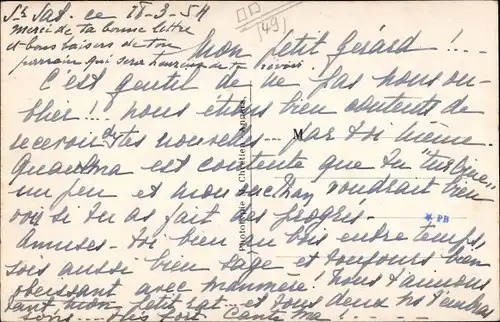 St Sat. ce 18-3-54
Merci de ta bonne lettre
et bons baisers de ton
parrain qui sera heureux de te revoir.
(49)
Mon petit Gérard !....
C'est gentil de ne pas nous ou-
blier !... nous étions bien contents de
recevoir des tes nouvelles... par toi même.
Grandma est contente que tu
un peu et mon voudrait bien
voir si tu as fait des progrès.
Amuses-toi bien au bois entre temps,
sois aussi bien sage et toujours bien
obéissant avec manmère ! Nous t'aimons
tant mon petit Gat... et tous deux ns t'embras
sons.... très fort. Tante Ma ! .....
M
Photographie de Chrétien, Angers
PB